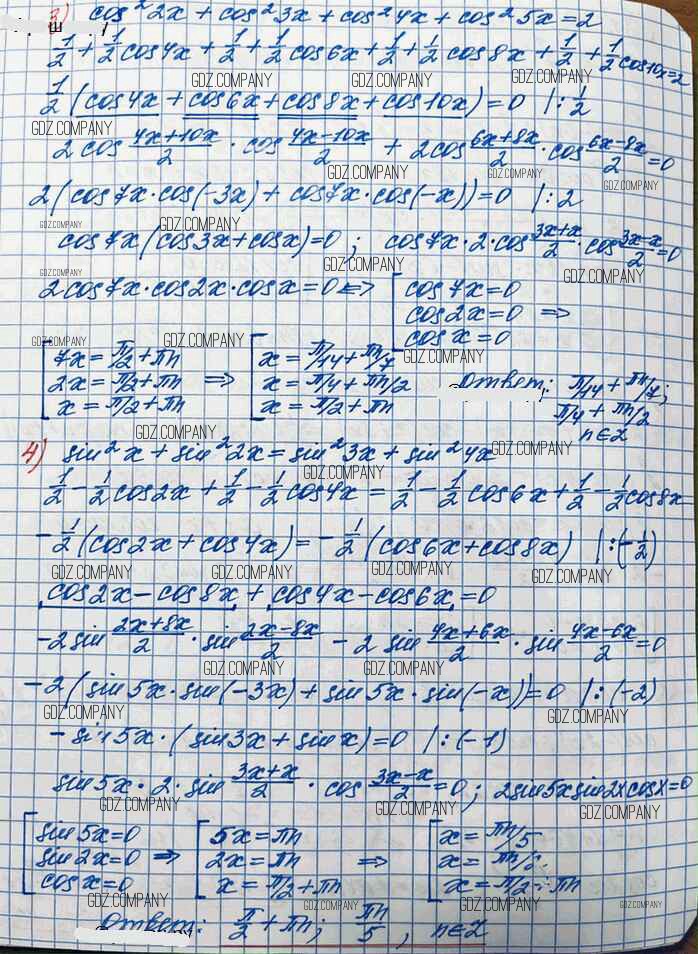 3) cos²2x + cos²3x + cos²4x + cos²5x = 2
1/2 + 1/2 cos4x + 1/2 + 1/2 cos6x + 1/2 + 1/2 cos8x + 1/2 + 1/2 cos10x = 2
GDZ.COMPANY GDZ.COMPANY GDZ.COMPANY
1/2 (cos4x + cos6x + cos8x + cos10x) = 0 |: 1/2
GDZ.COMPANY
2cos (4x+10x)/2 · cos (4x-10x)/2 + 2cos (6x+8x)/2 · cos (6x-8x)/2 = 0
GDZ.COMPANY GDZ.COMPANY GDZ.COMPANY
2(cos7x·cos(-3x) + cos7x·cos(-x)) = 0 |: 2
GDZ.COMPANY GDZ.COMPANY
cos7x(cos3x + cosx) = 0 ; cos7x·2·cos (3x+x)/2 · cos (3x-x)/2 = 0
GDZ.COMPANY GDZ.COMPANY
2cos7x·cos2x·cosx = 0 <=> [ cos7x = 0
cos2x = 0 =>
cosx = 0
GDZ.COMPANY GDZ.COMPANY GDZ.COMPANY
[ 7x = π/2 + πn [ x = π/14 + πn/7
2x = π/2 + πn => x = π/4 + πn/2 Ответ: π/14 + πn/7;
x = π/2 + πn x = π/2 + πn π/4 + πn/2
GDZ.COMPANY n∈Z
4) sin²x + sin²2x = sin²3x + sin²4x
GDZ.COMPANY GDZ.COMPANY GDZ.COMPANY
1/2 - 1/2 cos2x + 1/2 - 1/2 cos4x = 1/2 - 1/2 cos6x + 1/2 - 1/2 cos8x
-1/2 (cos2x + cos4x) = -1/2 (cos6x + cos8x) |:(-1/2)
GDZ.COMPANY GDZ.COMPANY GDZ.COMPANY GDZ.COMPANY
cos2x - cos8x + cos4x - cos6x = 0
-2sin (2x+8x)/2 · sin (2x-8x)/2 - 2 sin (4x+6x)/2 · sin (4x-6x)/2 = 0
GDZ.COMPANY GDZ.COMPANY GDZ.COMPANY
-2(sin5x·sin(-3x) + sin5x·sin(-x)) = 0 |:(-2)
GDZ.COMPANY GDZ.COMPANY GDZ.COMPANY
-sin5x·(sin3x + sinx) = 0 |:(-1)
sin5x·2·sin (3x+x)/2 · cos (3x-x)/2 = 0 ; 2sin5xsin2xcosx = 0
GDZ.COMPANY GDZ.COMPANY GDZ.COMPANY
[ sin5x = 0 [ 5x = πn [ x = πn/5
sin2x = 0 => 2x = πn => x = πn/2
cosx = 0 x = π/2 + πn x = π/2 + πn
GDZ.COMPANY GDZ.COMPANY GDZ.COMPANY GDZ.COMPANY
Ответ: π/2 + πn; πn/5, n∈Z